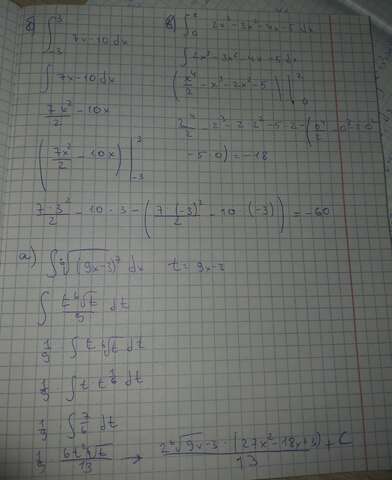 б) ∫₋₃³ 7x-10 dx
∫ 7x-10 dx
7x²/2 - 10x
(7x²/2 - 10x) |₋₃³
7·3²/2 - 10·3 - (7·(-3)²/2 - 10·(-3)) = -60
в) ∫₀² 2x³-3x²-4x-5 dx
∫ 2x³-3x²-4x-5 dx
(x⁴/2 - x³-2x²-5 ) |₀²
2⁴/2 - 2³-2·2²-5·2-(0⁴/2 - 0³
-5·0) = -18
а) ∫ ⁶√(9x-3)⁷ dx t=9x-3
∫ t ⁶√t/9 dt
1/9 ∫ t ⁶√t dt
1/9 ∫ t t
1/9 ∫ 7/6 dt
1/9 6t²⁶√t/13 → 2⁶√9x-3 · (27x²-18x+3)/13 + C